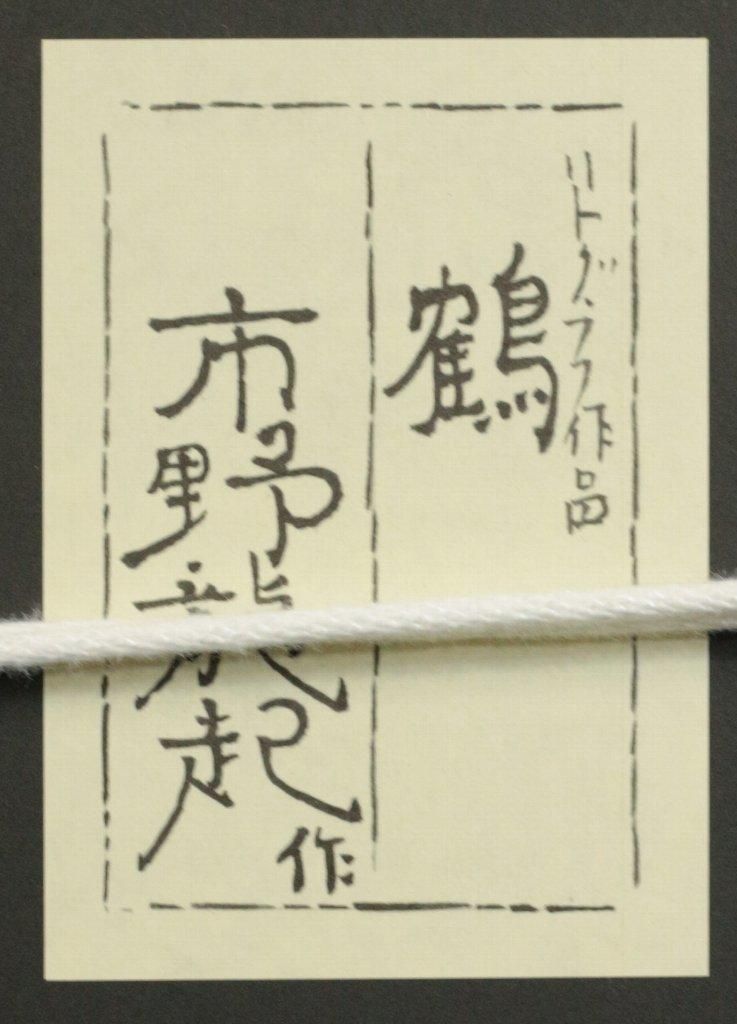 リトグラフ作品
鶴
市野龍起作